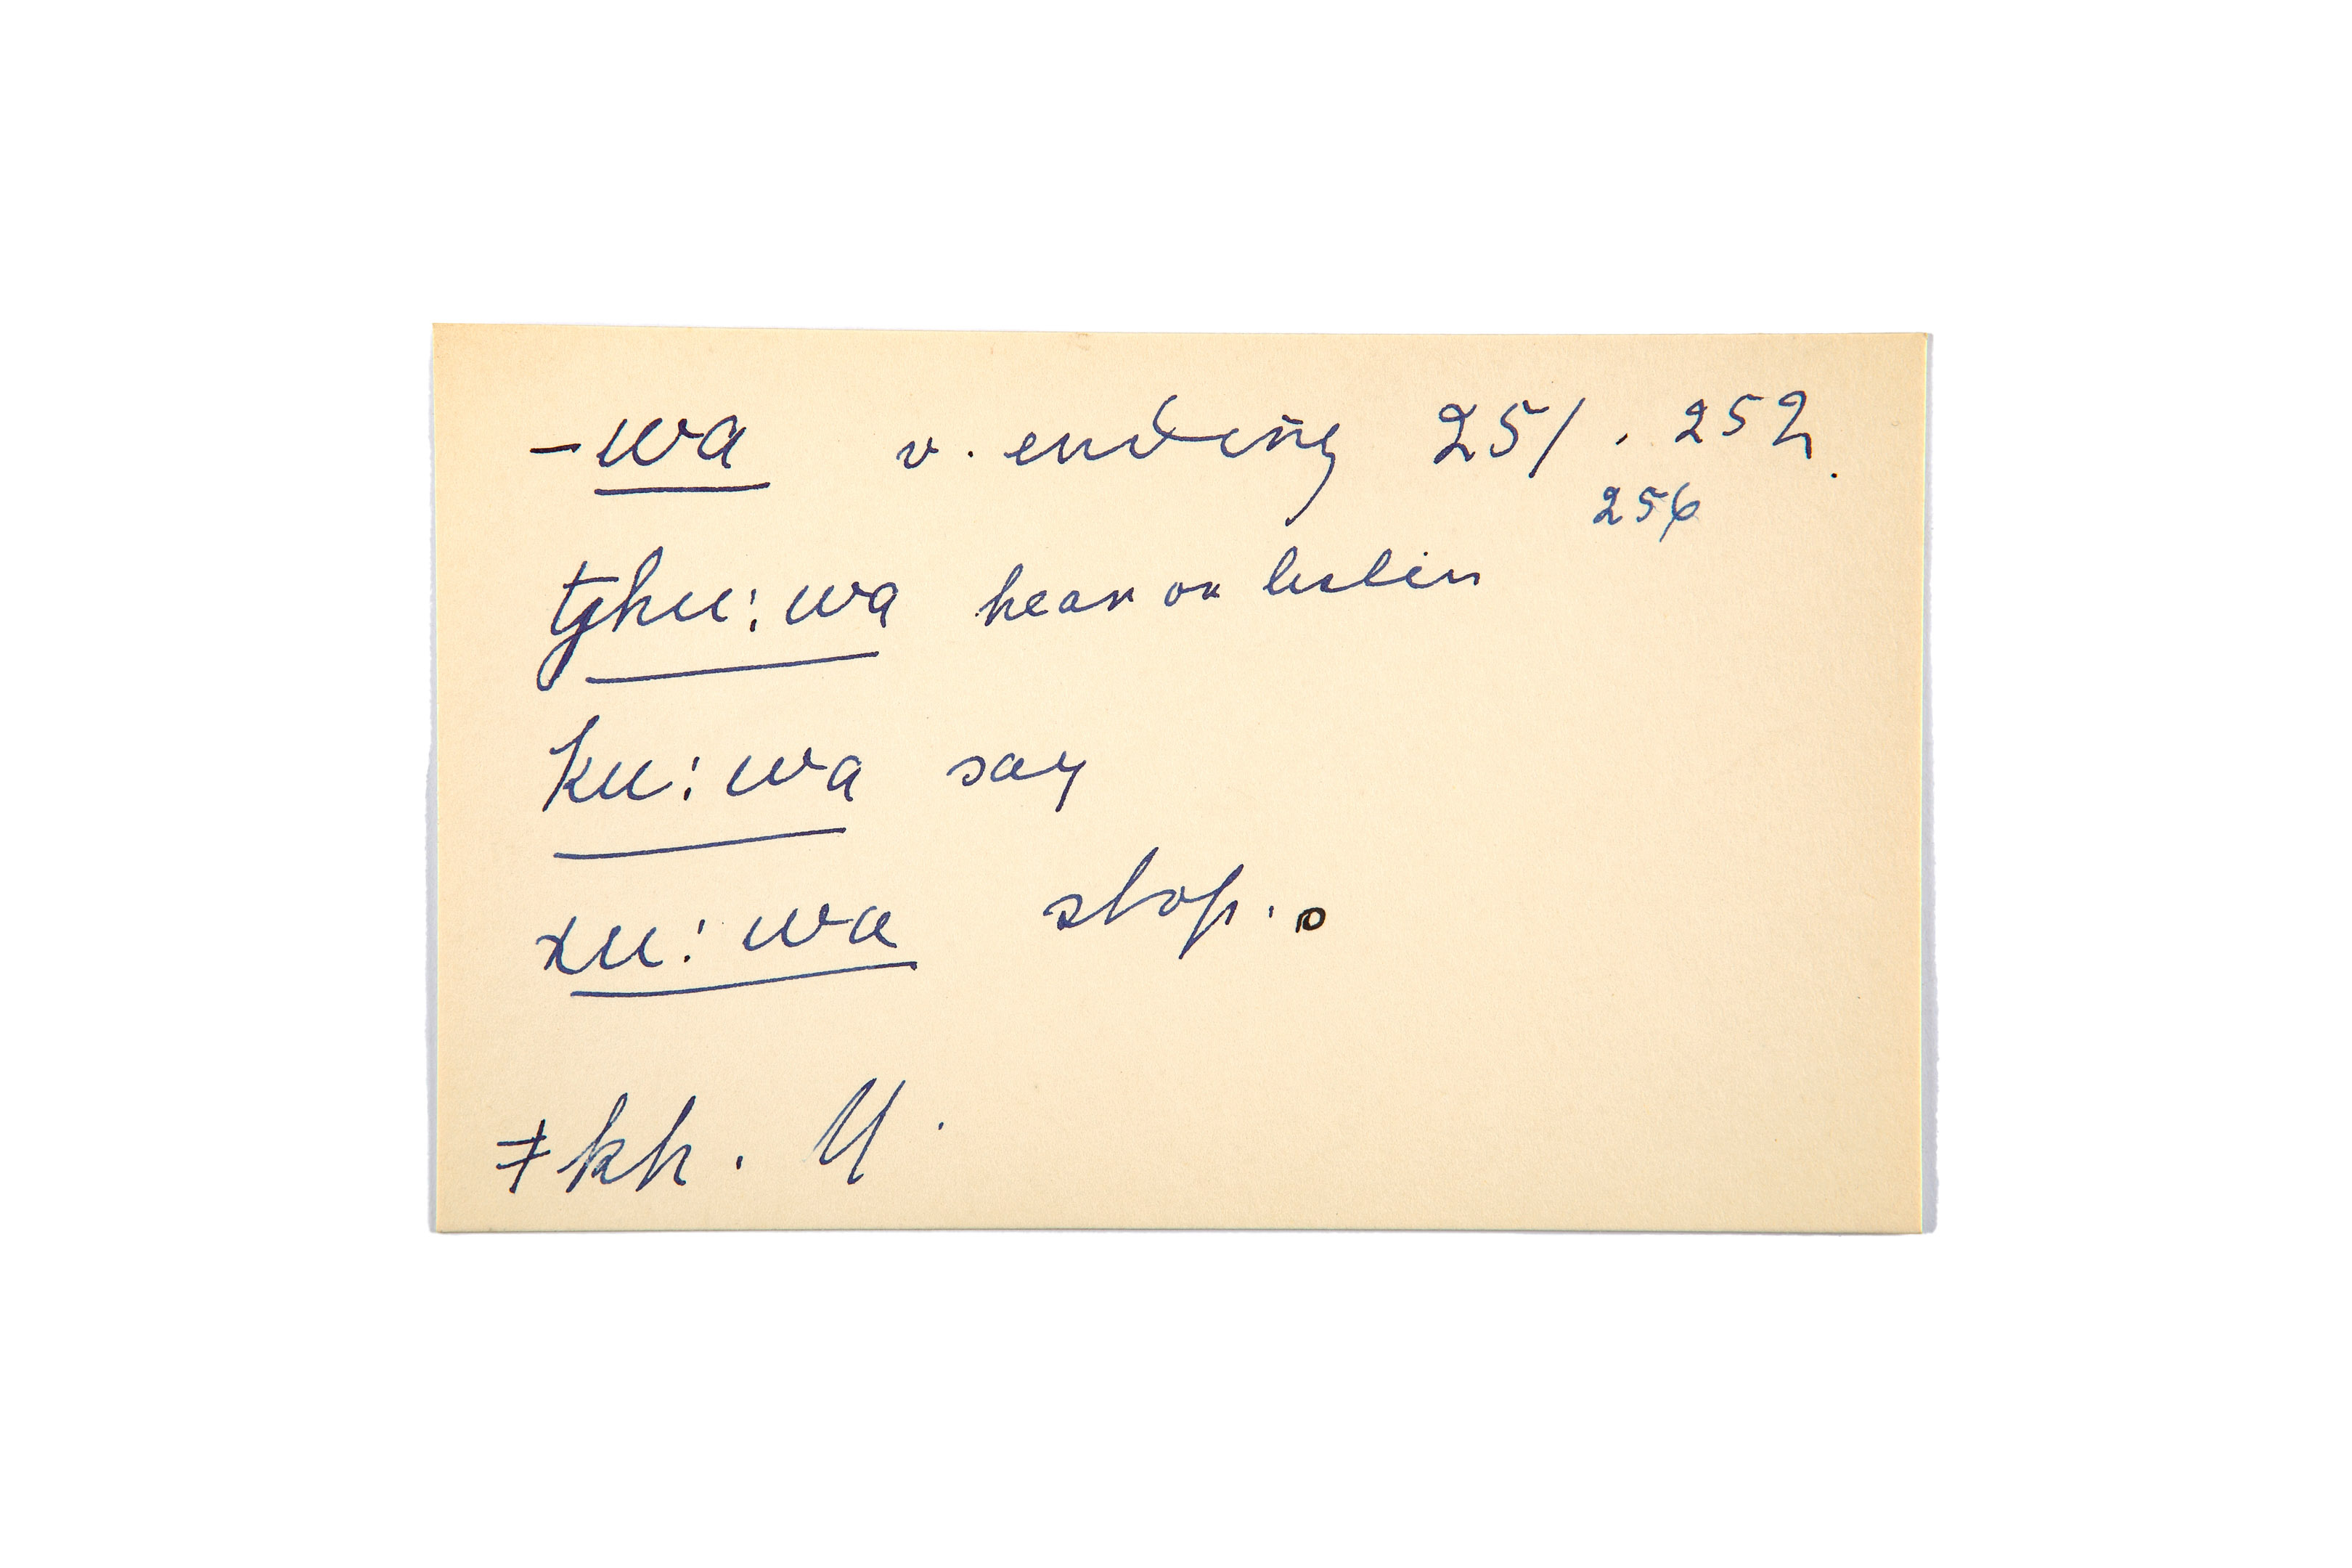 -wa v. ending 251, 252.
256
tʃhu:wa hear or listen
ku:wa say
xu:wa stop.
≠kh. Y.